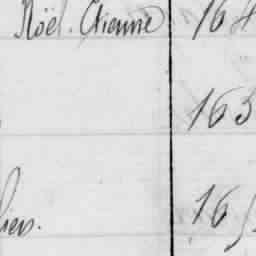 Noël. Etienne 164
163
iers. 165